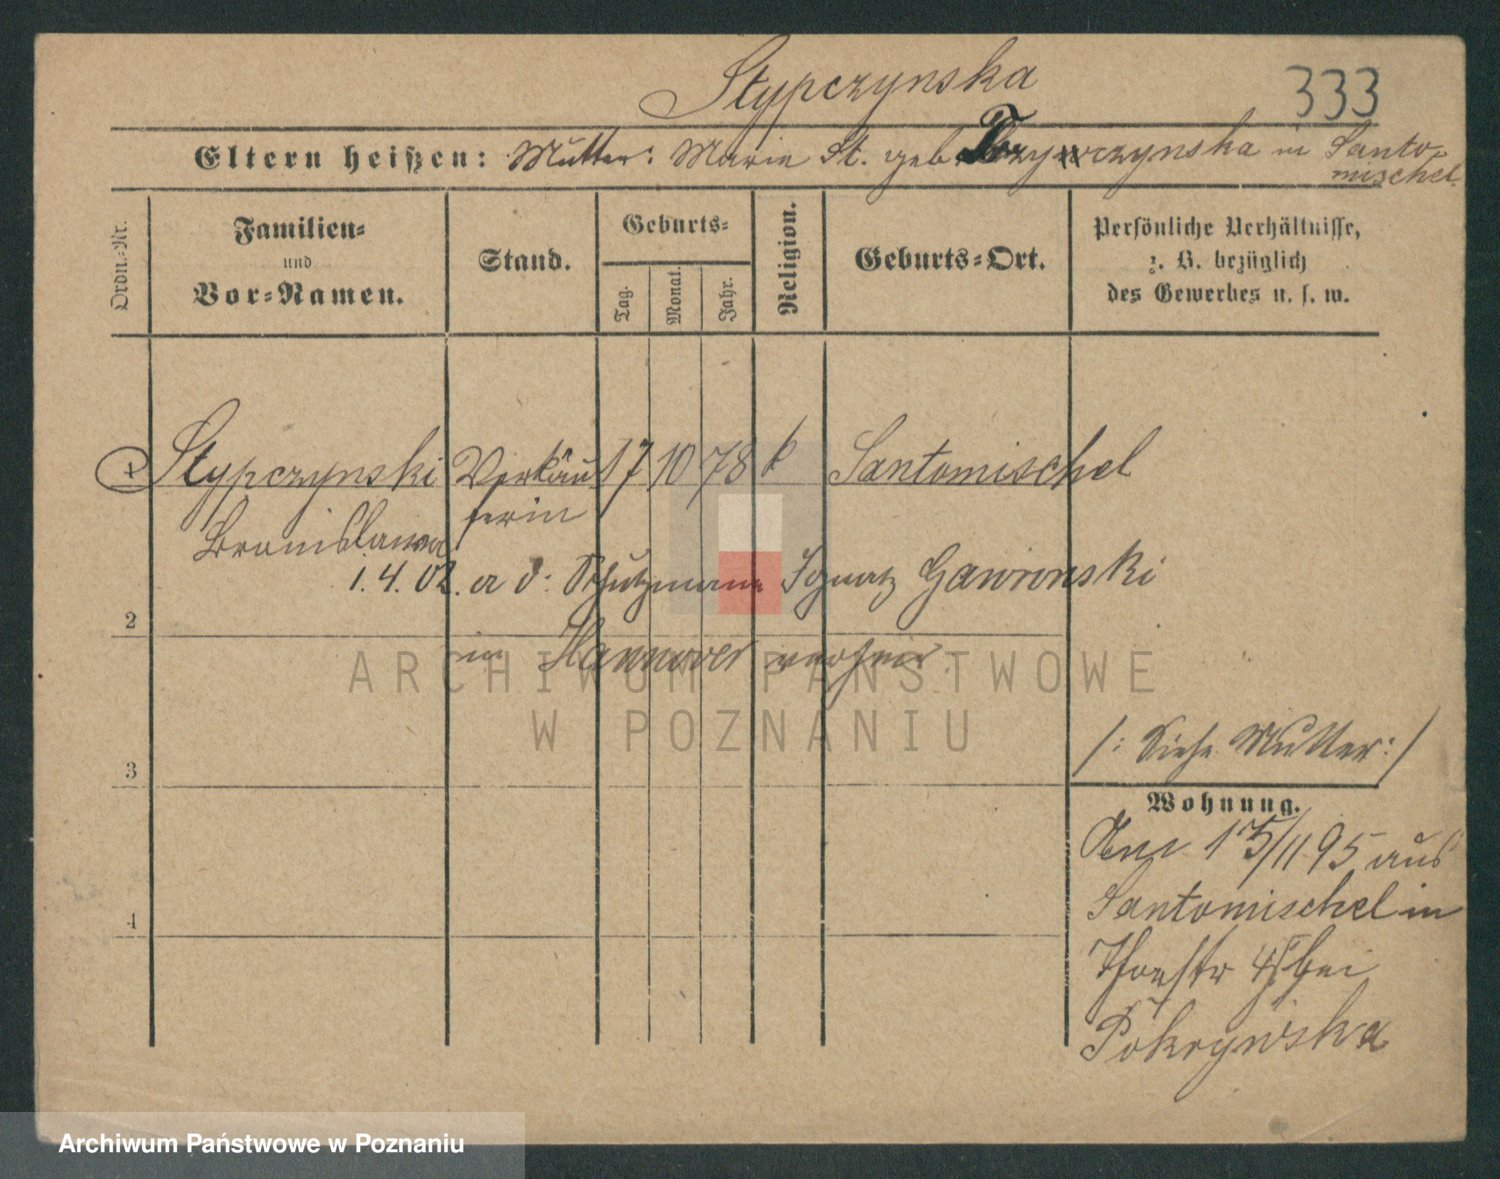 Stypczynska
333
Eltern heißen: Mutter: Marie St. geb. in Santo-
mischel
Ordn.-Nr.
Familien-
und
Vor-Namen.
Stand.
Geburts-
Tag.
Monat.
Jahr.
Religion.
Geburts-Ort.
Persönliche Verhältnisse,
z. B. bezüglich
des Gewerbes u. s. w.
1 Stypczynski Verkäu- 17 10 78 k Santomischel
Bronislawa ferin
1.4.02. a. d. Schutzmann Ignatz Gawronski
2
in Hannover verheir.
ARCHIWUM PAŃSTWOWE
W POZNANIU
/: Siehe Mutter :/
3
Wohnung.
15/11 95 aus
4
Santomischel in
bei
Pokrywska
Archiwum Państwowe w Poznaniu